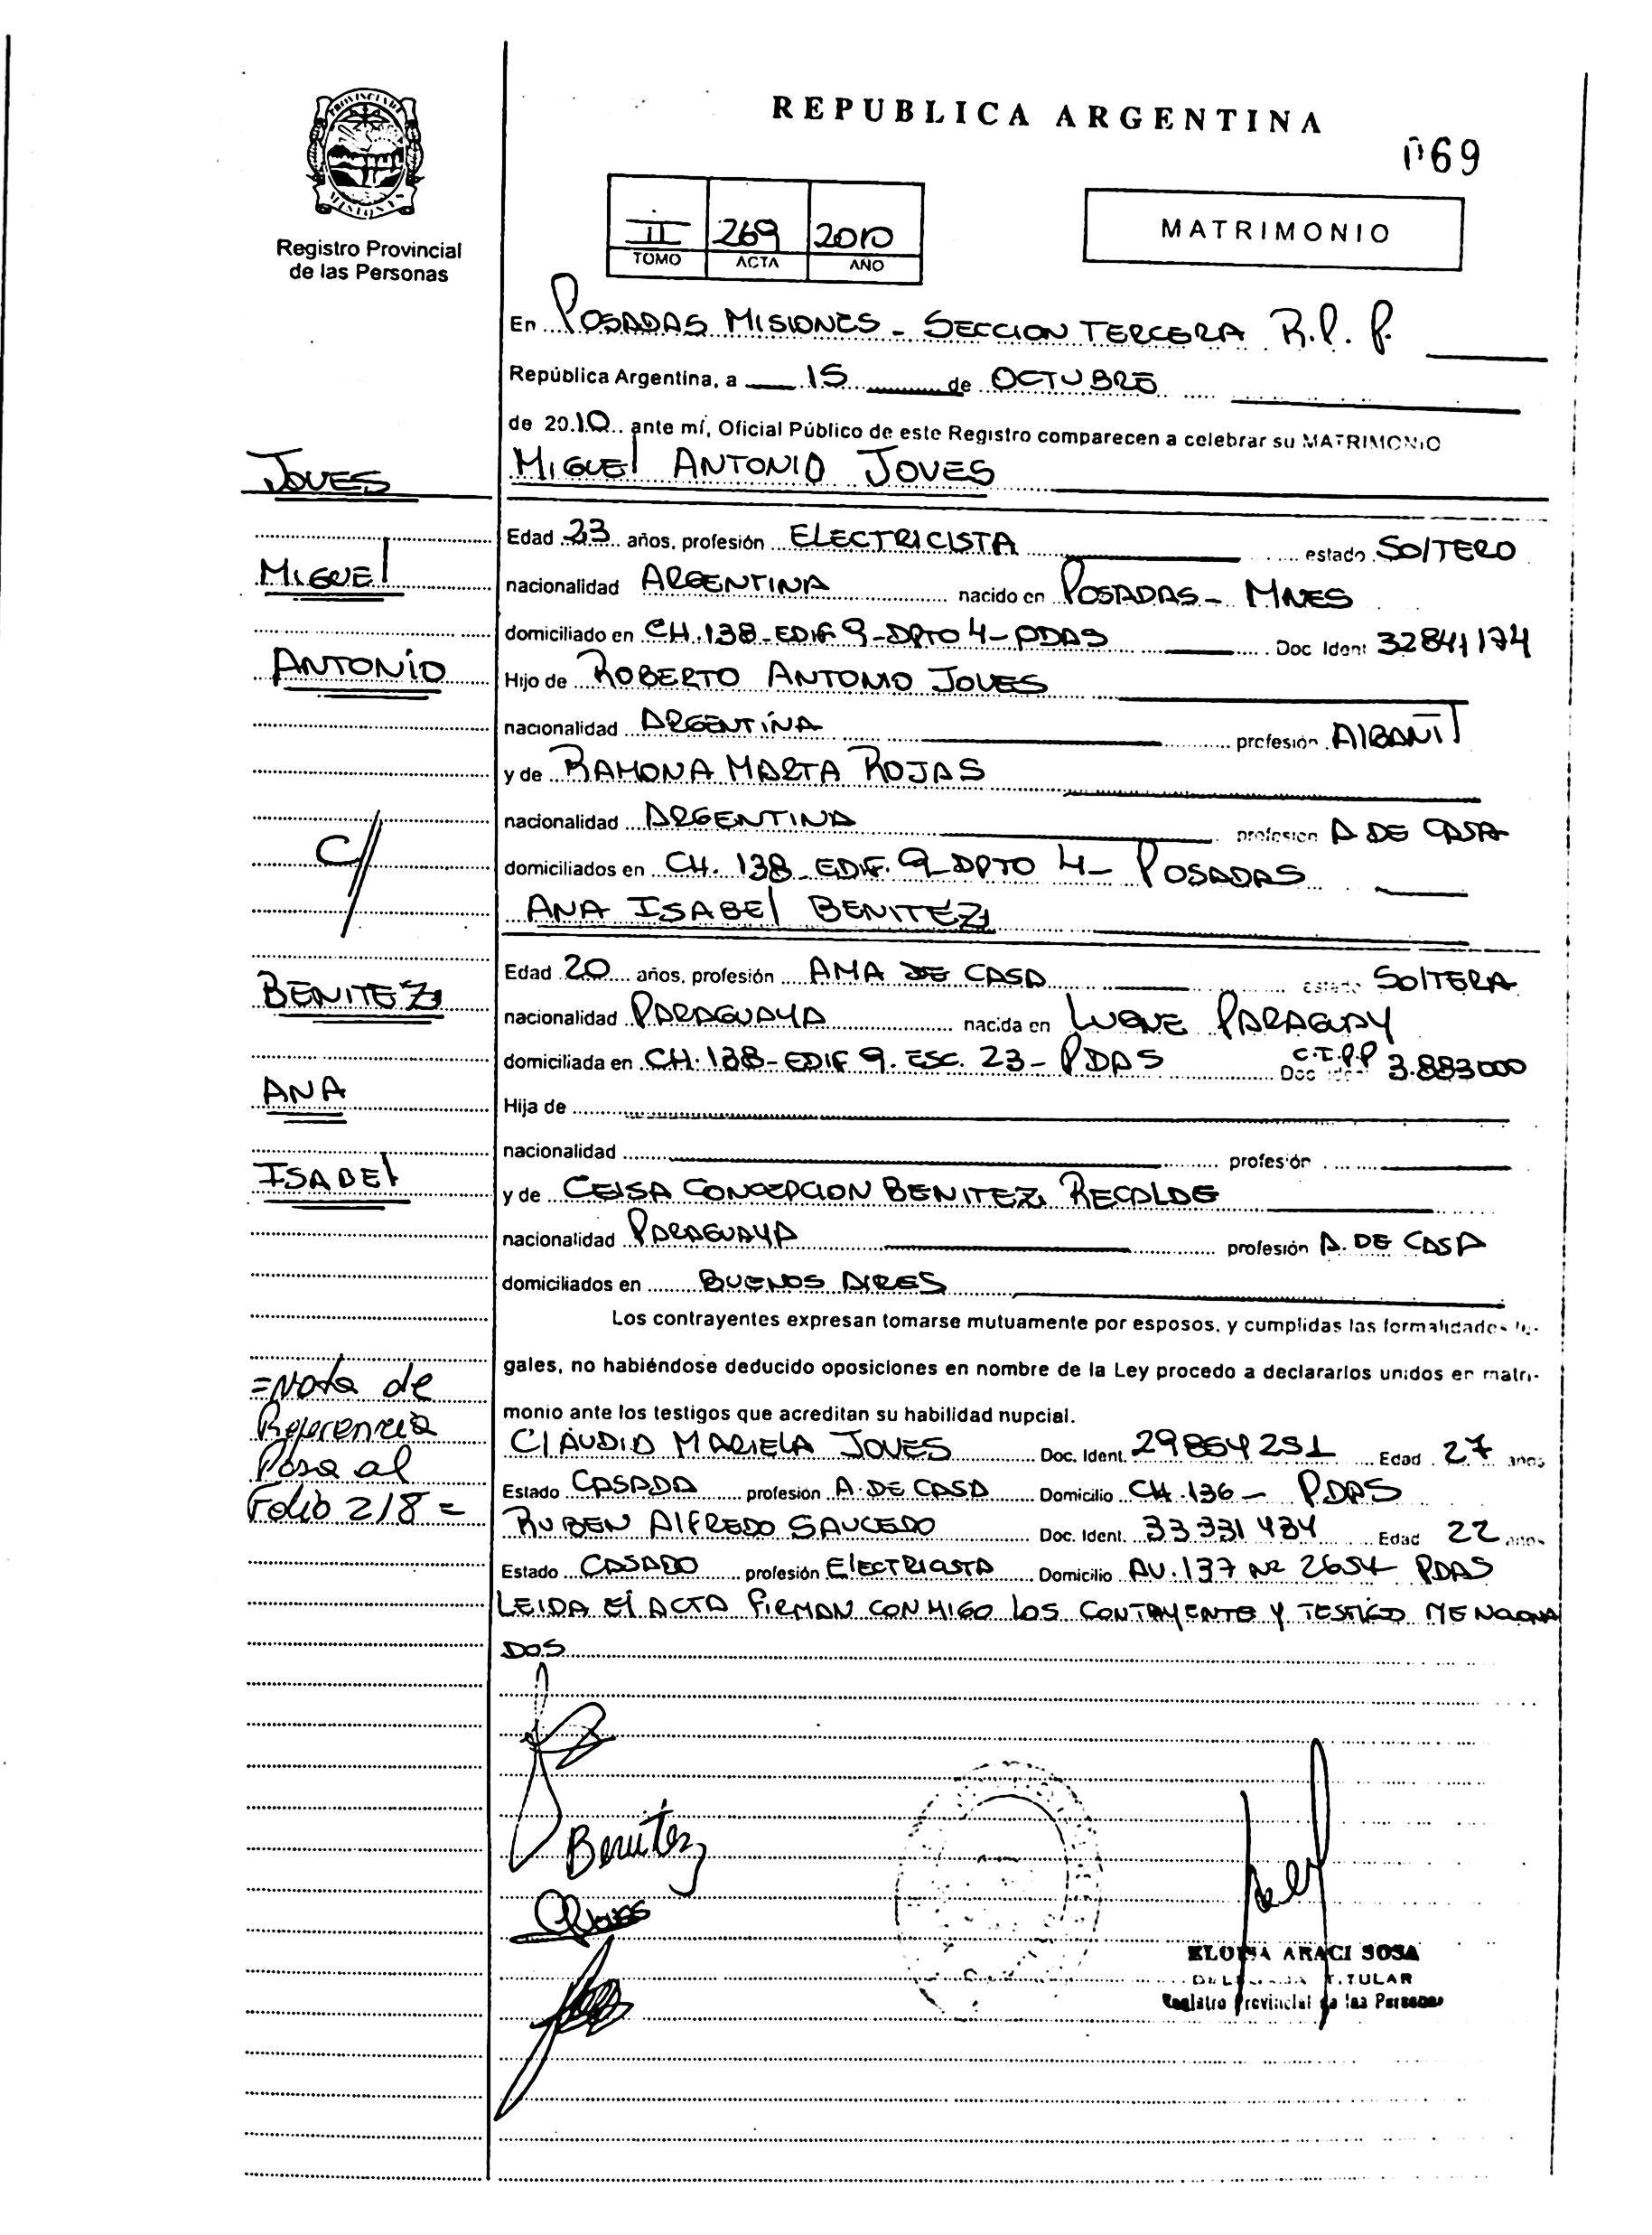 REPUBLICA ARGENTINA
069
PROVINCIA DE
MISIONES
Registro Provincial
de las Personas
II 269 2010
TOMO ACTA AÑO
MATRIMONIO
En POSADAS MISIONES - SECCION TERCERA R.P.P.
República Argentina, a 15 de OCTUBRE
de 2010 ante mí, Oficial Público de este Registro comparecen a celebrar su MATRIMONIO
JOVES
MIGUEL ANTONIO JOVES
Edad 23 años, profesión ELECTRICISTA estado SOLTERO
MIGUEL
nacionalidad ARGENTINA nacido en POSADAS - MNES
domiciliado en CH.138-EDIF 9-DPTO 4-PDAS Doc Ident 32841174
ANTONIO
Hijo de ROBERTO ANTONIO JOVES
nacionalidad ARGENTINA profesión ALBAÑIL
y de RAMONA MARTA ROJAS
nacionalidad ARGENTINA profesion A DE CASA
C/
domiciliados en CH. 138 EDIF. 9 DPTO 4- POSADAS
ANA ISABEL BENITEZ
Edad 20 años, profesión AMA DE CASA estado SOLTERA
BENITEZ
nacionalidad PARAGUAYA nacida en LUQUE PARAGUAY
domiciliada en CH.138-EDIF 9. ESC. 23- PDAS Doc Ident C.I.P.P 3.883000
ANA
Hija de
nacionalidad profesión
ISABEL
y de CELSA CONCEPCION BENITEZ RECALDE
nacionalidad PARAGUAYA profesión A. DE CASA
domiciliados en BUENOS AIRES
Los contrayentes expresan tomarse mutuamente por esposos, y cumplidas las formalidades le-
gales, no habiéndose deducido oposiciones en nombre de la Ley procedo a declararlos unidos en matri-
monio ante los testigos que acreditan su habilidad nupcial.
=Nota de
Referencia
Pasa al
Folio 218=
CLAUDIA MARIELA JOVES Doc. Ident. 29864251 Edad 27 años
Estado CASADA profesión A.DE CASA Domicilio CH.136- PDAS
RUBEN ALFREDO SAUCEDO Doc. Ident. 33331434 Edad 22 años
Estado CASADO profesión ELECTRICISTA Domicilio AV.137 Nº 2654 PDAS
LEIDA EL ACTA FIRMAN CONMIGO LOS CONTRAYENTE Y TESTIGO MENCIONA
DOS
Benitez
Joves
ELOISA ARACI SOSA
DELEGADA TITULAR
Registro Provincial de las Personas